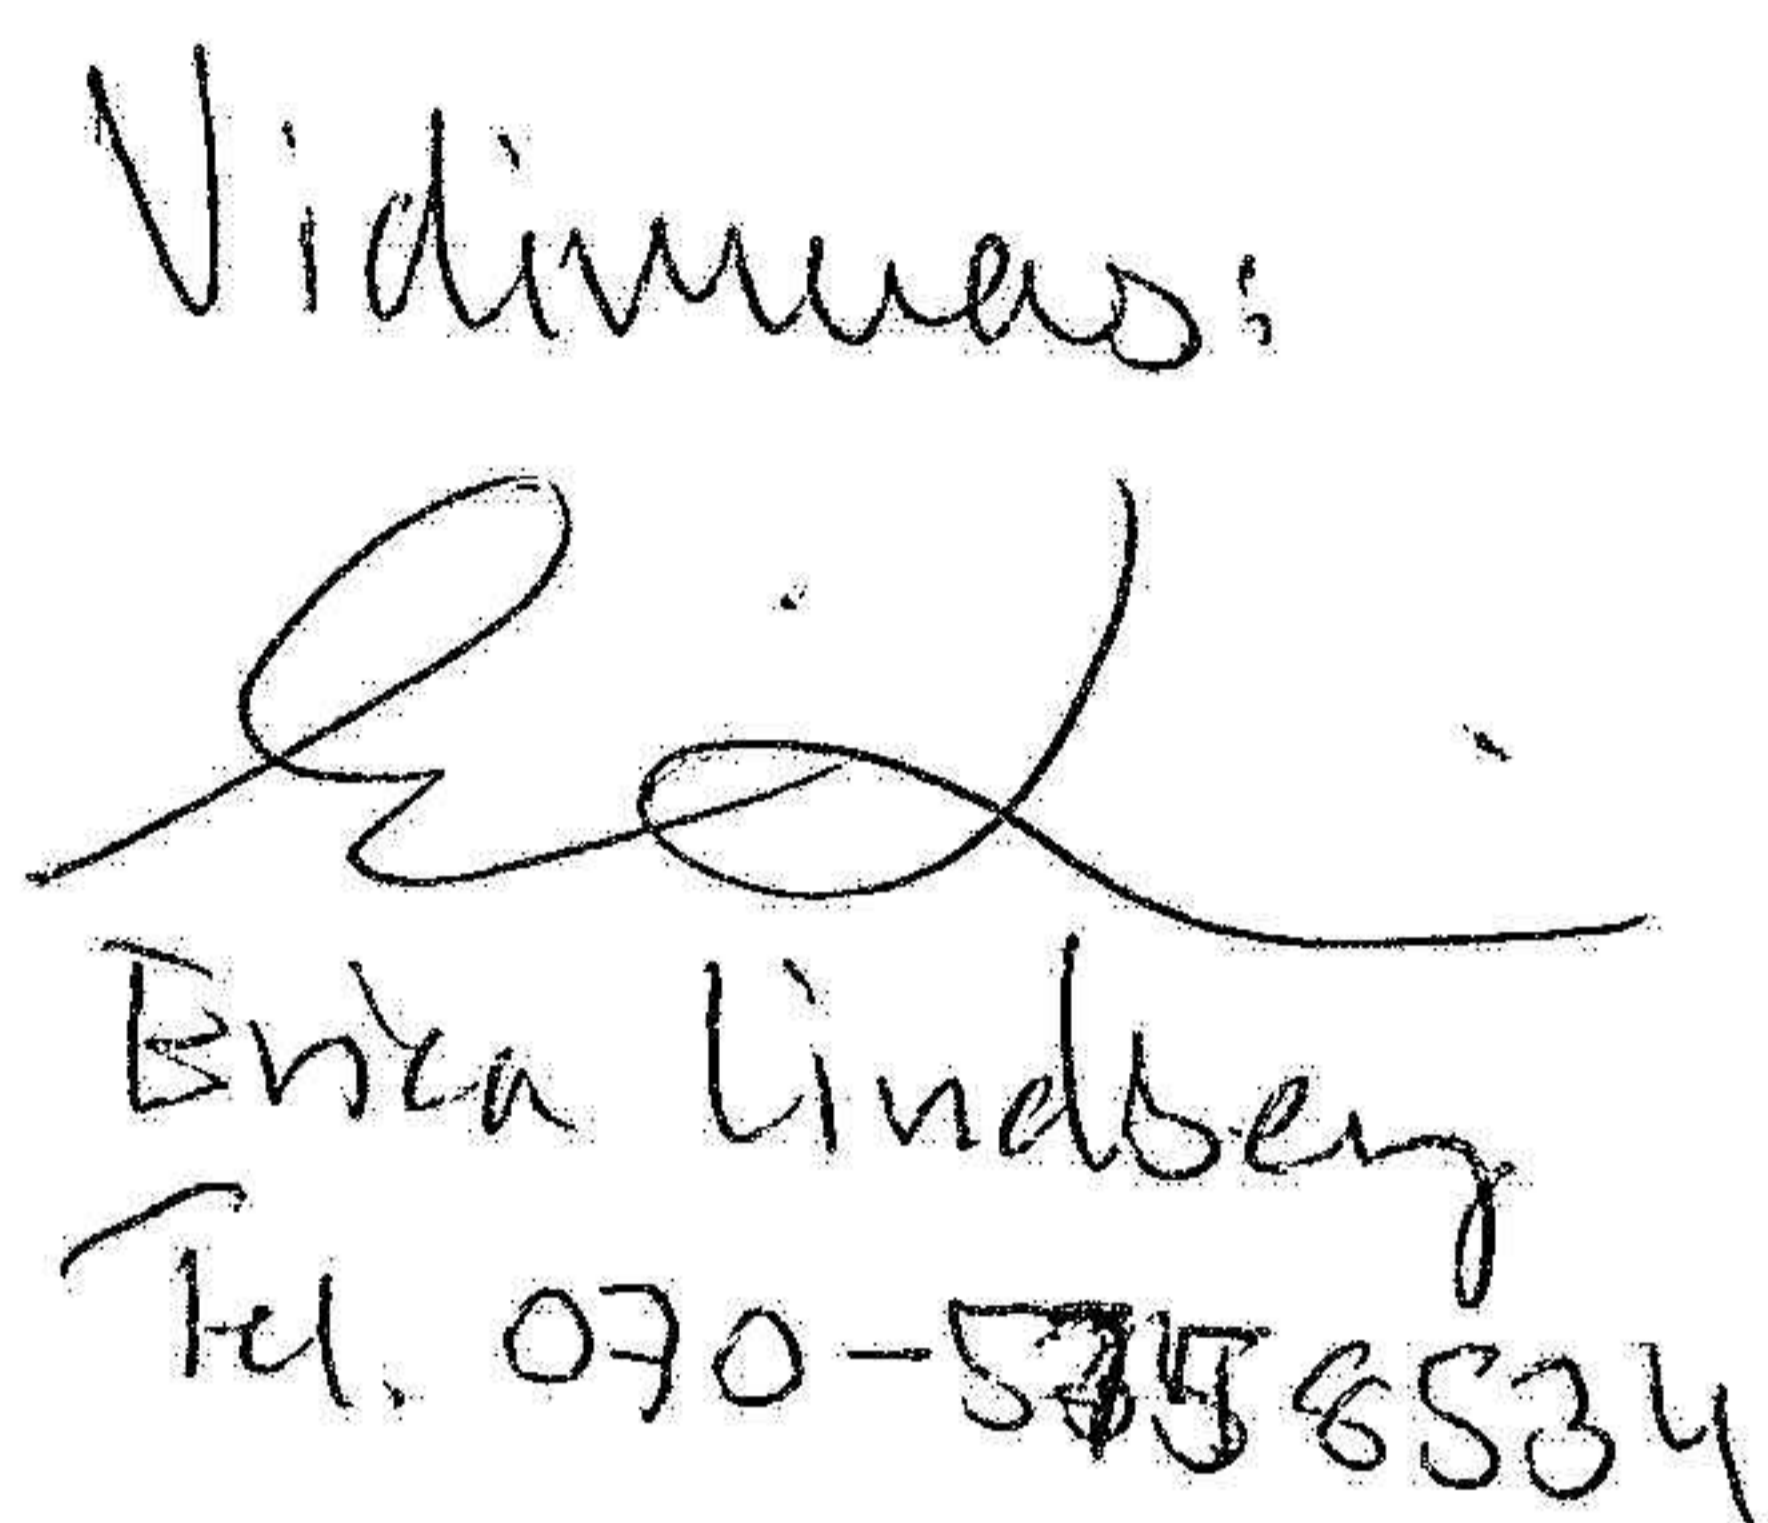 Vidimeras:
Erica Lindberg
Tel. 070-